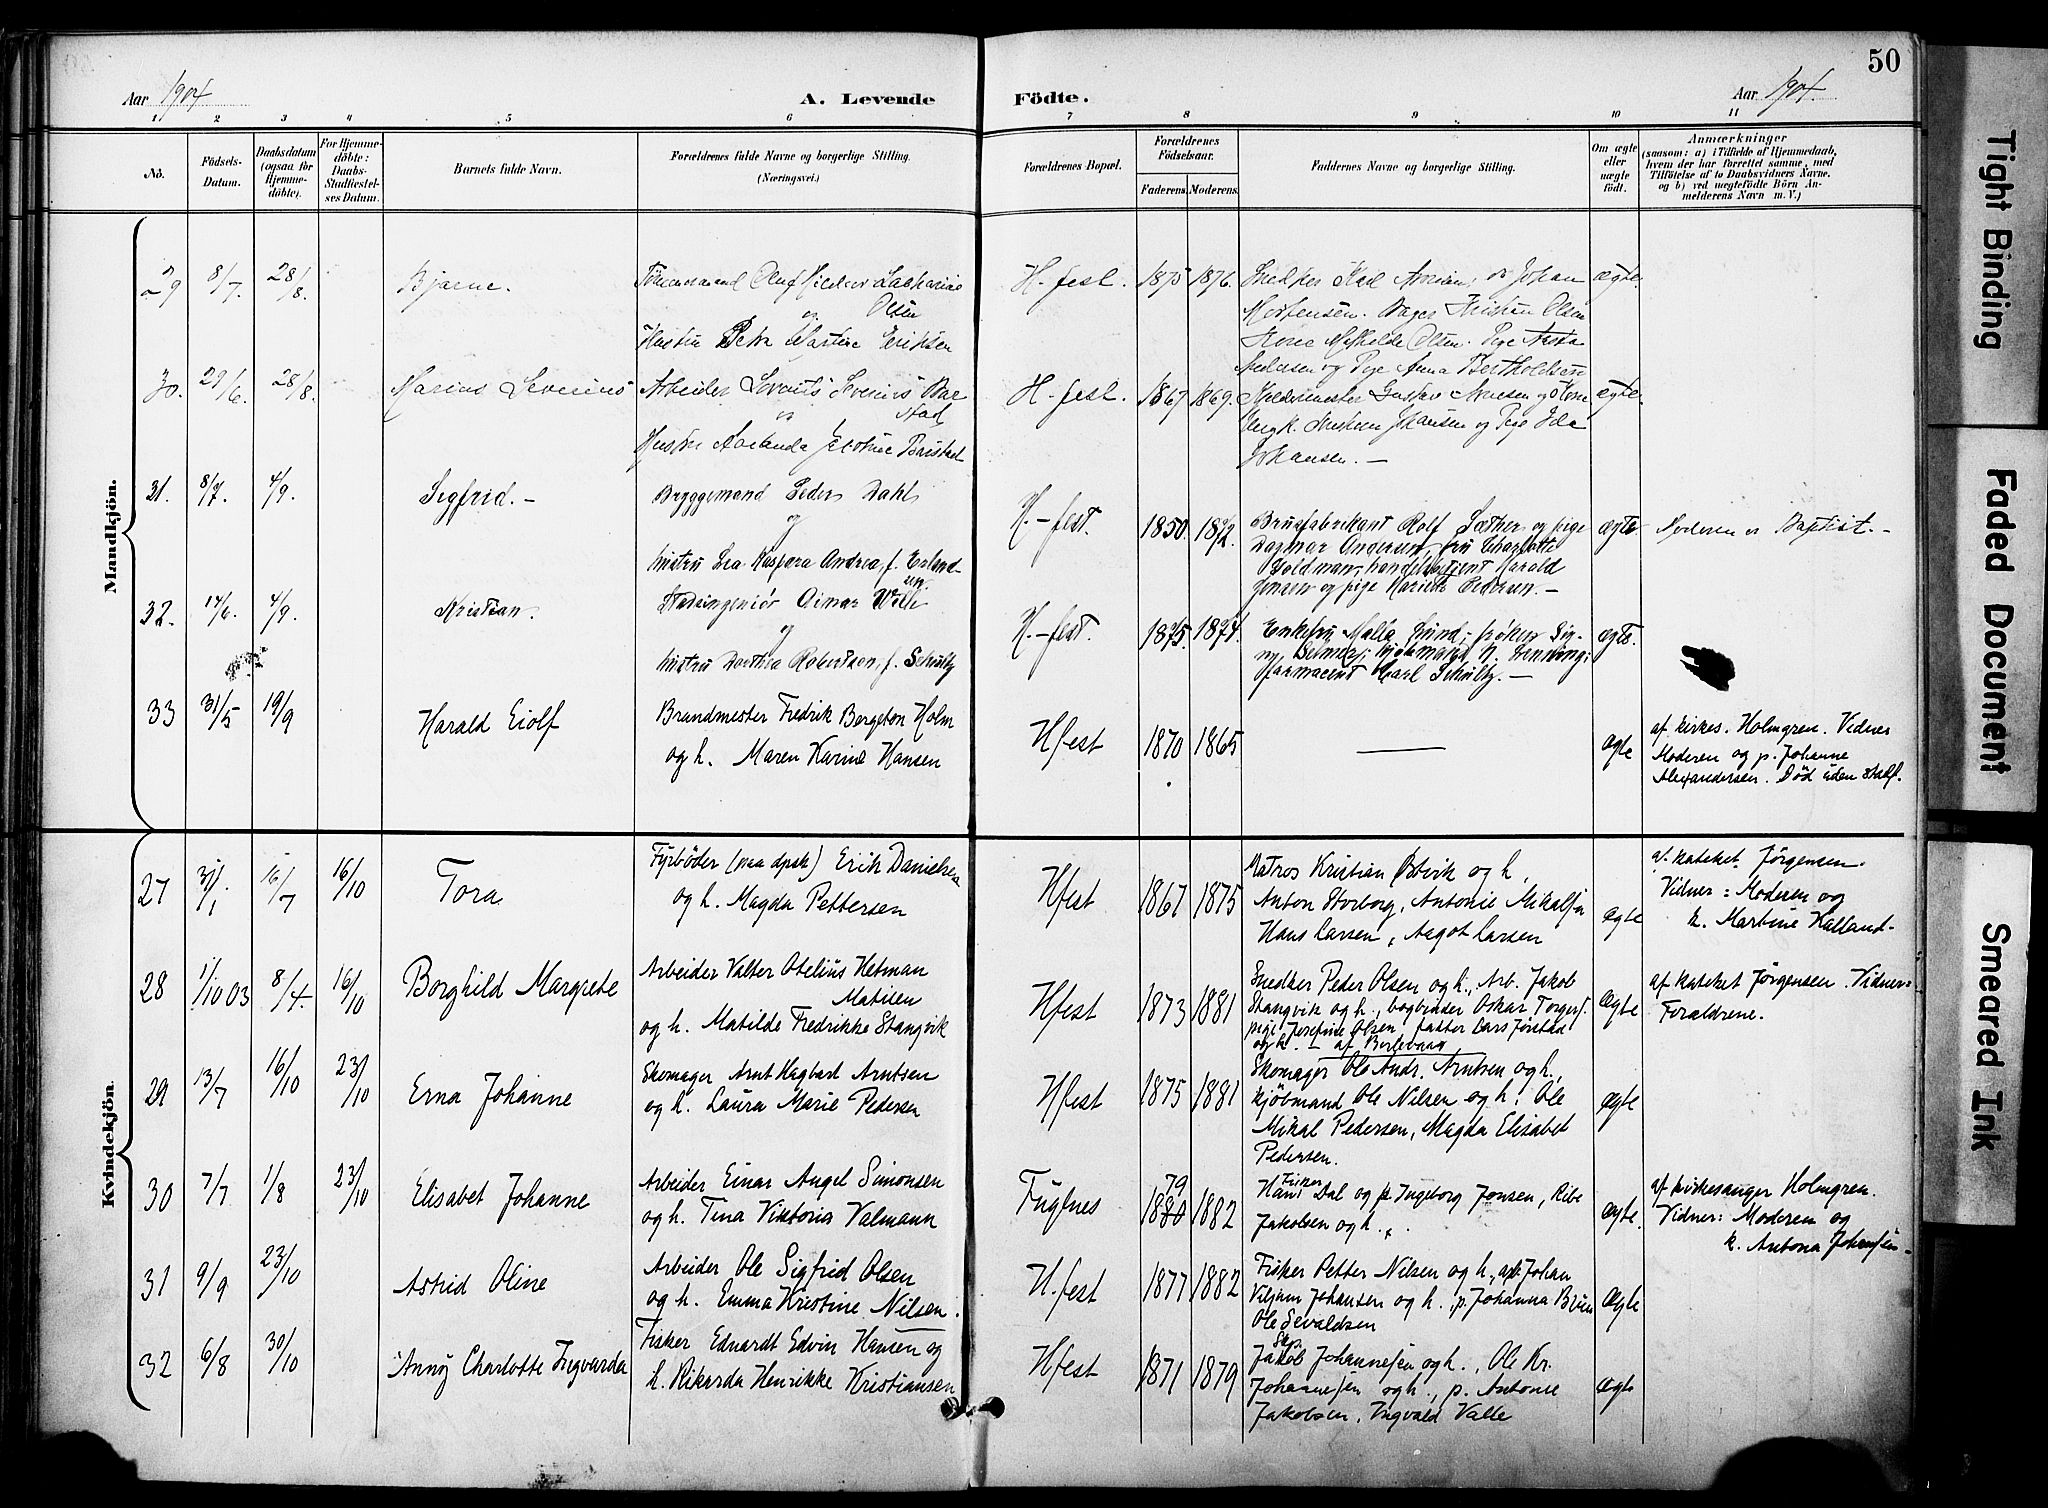 50
Aar 1904
A. Levende Födte.
Aar 1904.
1 2 3 4 5 6 7 8 9 10 11
No.
Födsels-
Datum.
Daabsdatum
(ogsaa för
Hjemme-
döbte).
For Hjemme-
döbte:
Daabs-
Stadfæstel-
ses Datum.
Barnets fulde Navn.
Forældrenes fulde Navne og borgerlige Stilling.
(Næringsvei.)
Forældrenes Bopæl.
Forældrenes
Födselsaar.
Faderens. Moderens.
Faddernes Navne og borgerlige Stilling.
Om ægte
eller
uægte
födt.
Anmærkninger
(saasom: a) i Tilfælde af Hjemmedaab,
hvem der har forrettet samme, med
Tilföielse af to Daabsvidners Navne.
og b) ved uægtefödte Börn An-
melderens Navn m. V.)
Mandkjön.
29 8/7. 28/8. Bjarne.
Olsen
Hustru Petra Martine Eriksen
H.fest. 1875 1876.
Mortensen. Kristen Olsen
Olsen. Pige
og Pige Anna Bertholdsen
ægte
30. 29/6. 28/8. Marius Severius
Arbeider Severius
og
Hustru
H.fest. 1867 1869.
Gustav og
Johansen og Pige Ida
Johansen. —
ægte.
31. 8/7. 4/9. Sigfrid. —
Bryggemand Peder Dahl
og
hustru Lea Kaspara Andrea, f. Erland-
sen
H.–fest. 1850. 1872.
Brusfabrikant Rolf Sæther og pige
Dagmar Andersen, fru Charlotte
Feldman, handelsbetjent Harald
Jensen og pige Pedersen. —
ægte.
Moderen er Baptist. —
32. 14/6. 4/9. Kristian.
Stadsingeniör
og
hustru Dorthea Robertson, f. Schultz
H.–fest. 1875. 1874.
Enkefru Malla Lund; fröken Sig-
ny kjöbmand Henning;
Farmaceut Carl Schultz. —
ægte.
33 31/5 19/9 Harald Eiolf
Brandmester Fredrik Bergeton Holm
og h. Maren Karine Hansen
Hfest 1870 1865 —
ægte
af kirkes. Holmgren. Vidner
Moderen og p. Johanne
Alexandersen. Död uden stadf.
Kvindekjön.
27 31/1 16/7 16/10 Tora
Fyrböder (paa dpsk) Erik Danielsen
og h. Magda Pettersen
Hfest 1867 1875
Matros Kristian Östvik og h,
Anton Storborg, Antonie Mikalsen
Hans Larsen, Aagot Larsen
ægte
af kateket Jørgensen.
Vidner: Moderen og
k. Martine Kalland-
28 1/10 03 8/4. 16/10 Borghild Margrete
Arbeider Valter Otelius Hetman
Matisen
og h. Matilde Fredrikke Stangvik
Hfest 1873 1881
Snedker Peder Olsen og h., Arb. Jakob
Stangvik og h., bogbinder Oskar Torgers.
pige Josefine Olsen, Lars Jörstad
og h. — af Berlevaag
ægte
af kateket Jörgensen. Vidner:
Forældrene.
29 13/7 16/10 23/10 Erna Johanne
Skomager Arnt Hagbart Arntsen
og h. Laura Marie Pedersen
Hfest 1875 1881
Skomager Ole Andr. Arntsen og h.,
kjöbmand Ole Nilsen og h. Ole
Mikal Pedersen, Magda Elisabet
Pedersen.
ægte
30 7/7 1/8 23/10 Elisabet Johanne
Arbeider Einar Angel Simonsen
og h. Tina Viktoria Valmann
Fuglnes 1880 79 1882
Fisker
Hans Dal og p. Ingeborg Jensen,
Jakobsen og h.,
ægte
af kirkesanger Holmgren.
Vidner: Moderen og
k. Antona Johansen-
31 9/9 23/10 Astrid Oline
Arbeider Ole Sigfrid Olsen
og h. Emma Kristine Nilsen.
H.fest 1877 1882
Fisker Petter Nilsen og h., arb. Johan
Viljam Johansen og h., p. Johanna Bruun
Ole Sevaldsen
ægte
32 6/8 30/10 Anny Charlotte Ingvarda
Fisker Edvardt Edvin Hansen og
h. Rikarda Henrikke Kristiansen
Hfest 1871 1879
Jakob Johannesen og h., Ole Kr.
Johannesen og h., p. Antonie
Jakobsen, Ingvald Valle
ægte
Tight Binding
Faded Document
Smeared Ink